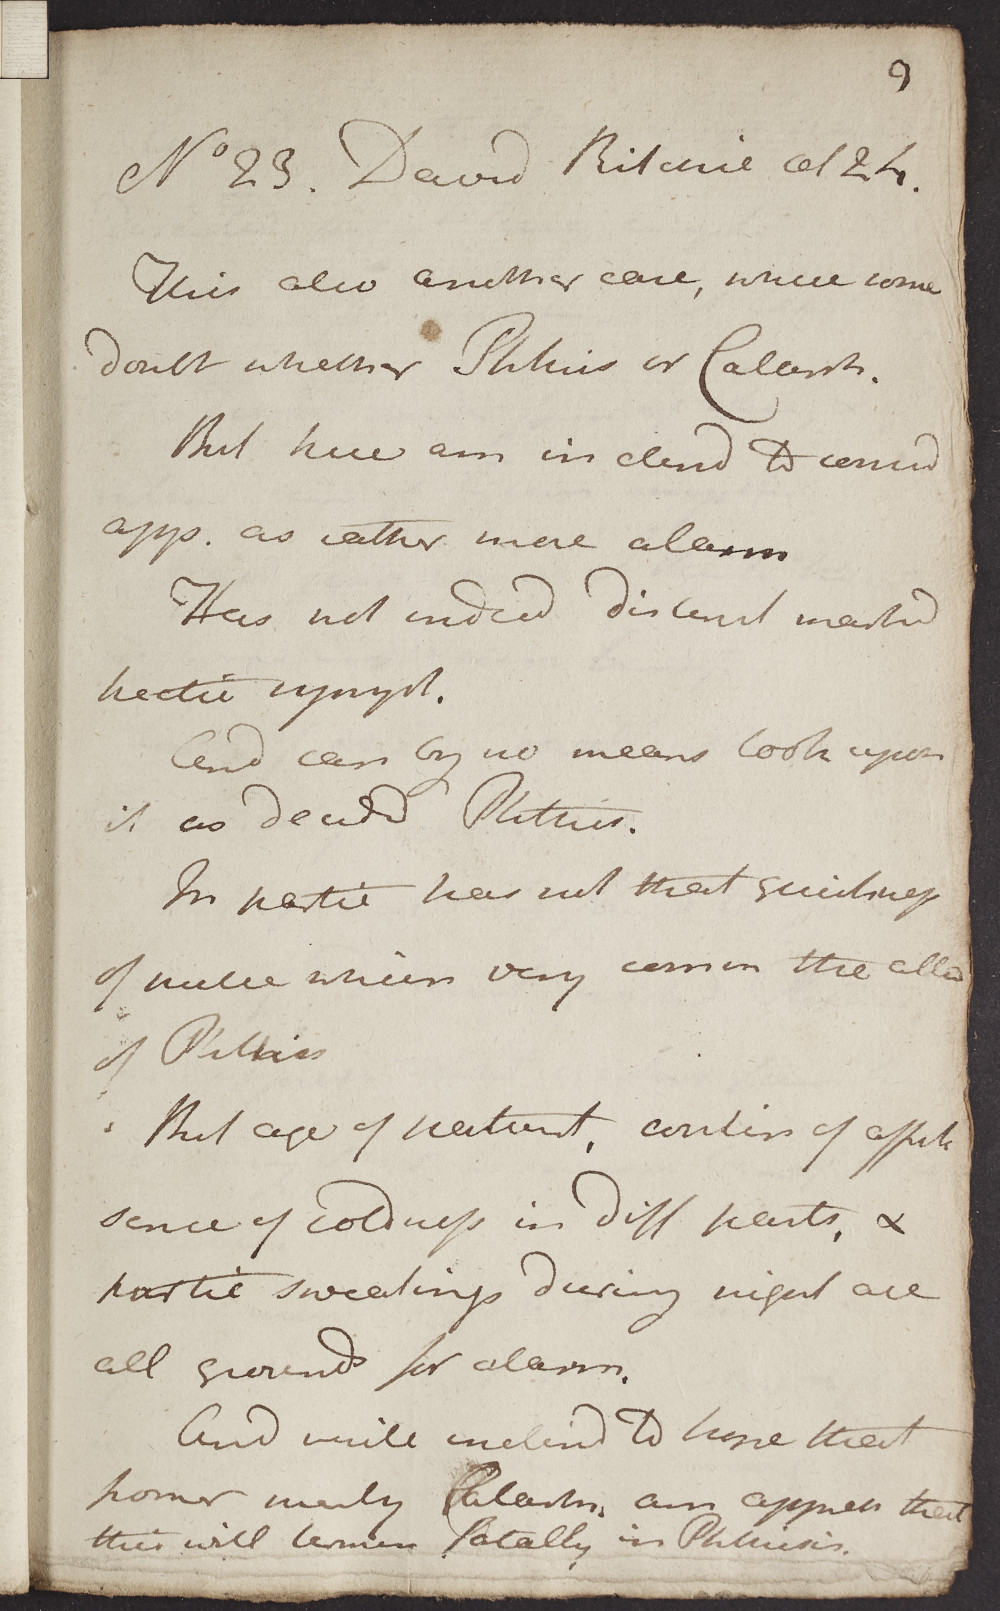 9
No 23. David Ritchie aet 24.
This also another case, where some
doubt whether Phthisis or Catarrh.
But here am inclend to consid
app. as rather more alarm
Has not indeed distinct markd
hectic sympt.
And can by no means look upon
it as decidd Phthisis.
In partic has not that quickness
of pulse which very common the
of Phthisis
But age of patient, contin of
sence of coldness in diff parts, &
partic sweatings during night are
all grounds for alarm.
And while inclind to hope that
former merly Catarrh, am appreh that
this will termin fatally in Phthisis.